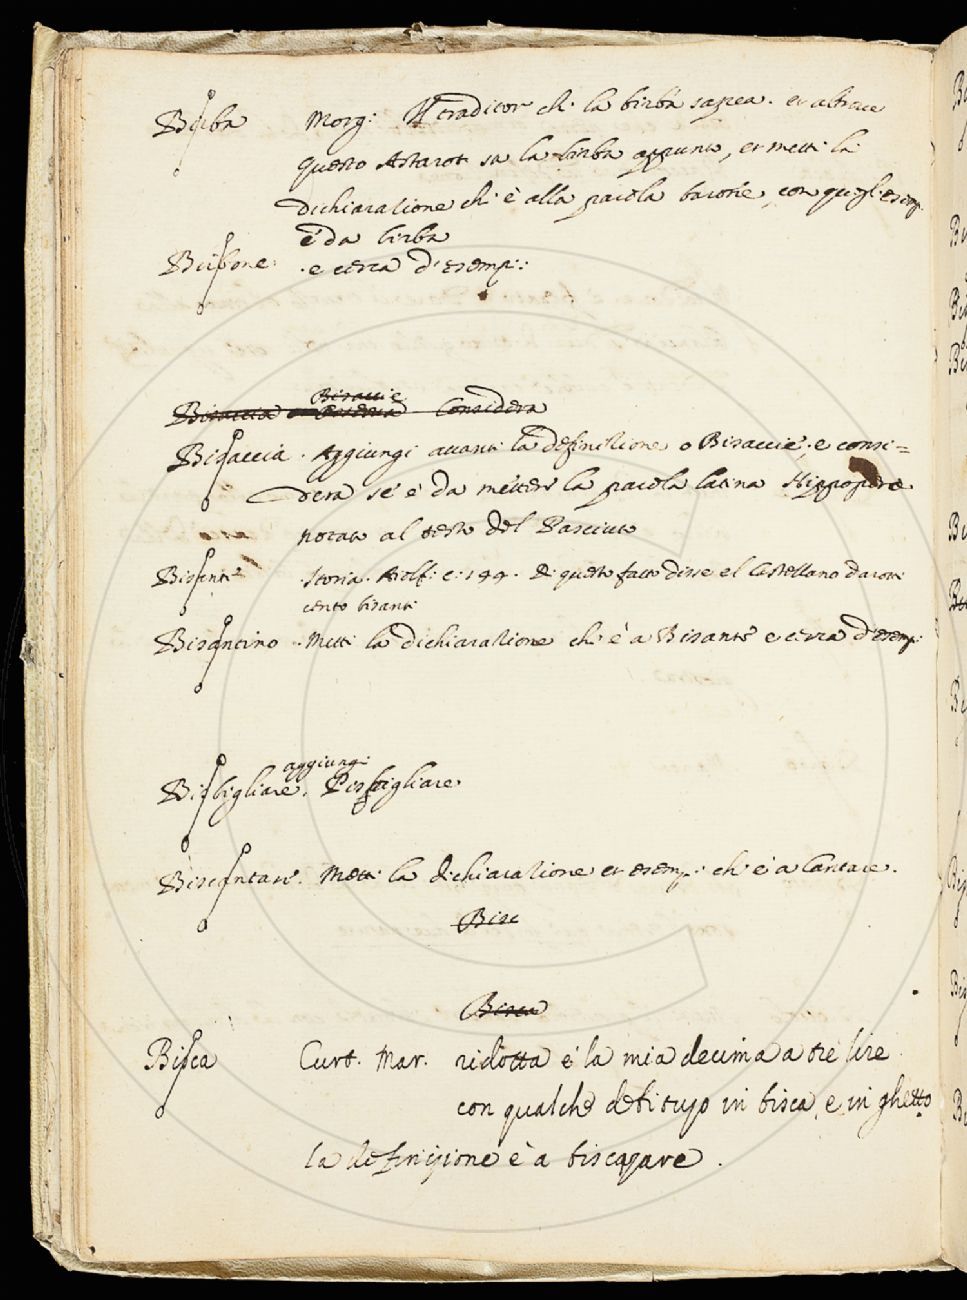 Birba Morg: Il traditor ch. la birba sapea. et altrove
questo Astarot sa la birba appunto, et metti la
dichiarazione ch. è alla parola barone, con quegl'esemp.
è da birba
Birbone. e cerca d'esemp:
Bisaccie
Bisaccia Considera
Bisaccia. Aggiungi avanti la definizione o Bisaccie, e consi=
dera se è da metters la parola latina Hippopera
notata al testo del
Bisanti Storia. Aiolf: c: 199. Di questo fatto disse el Castellano darotti
cento bisanti
Bisantino. Metti la dichiarazione ch. è a Bisante e cerca d'esemp:
aggiungi
Bisbigliare. Pispigliare
Biscantare. Metti la dichiarazione et esemp: ch. è a Cantare.
Bisc
Bisca
Bisca Curt. Mar. ridotta è la mia decima a tre lire
con qualche debituzo in bisca, e in ghetto
la definizione è a biscazzare.